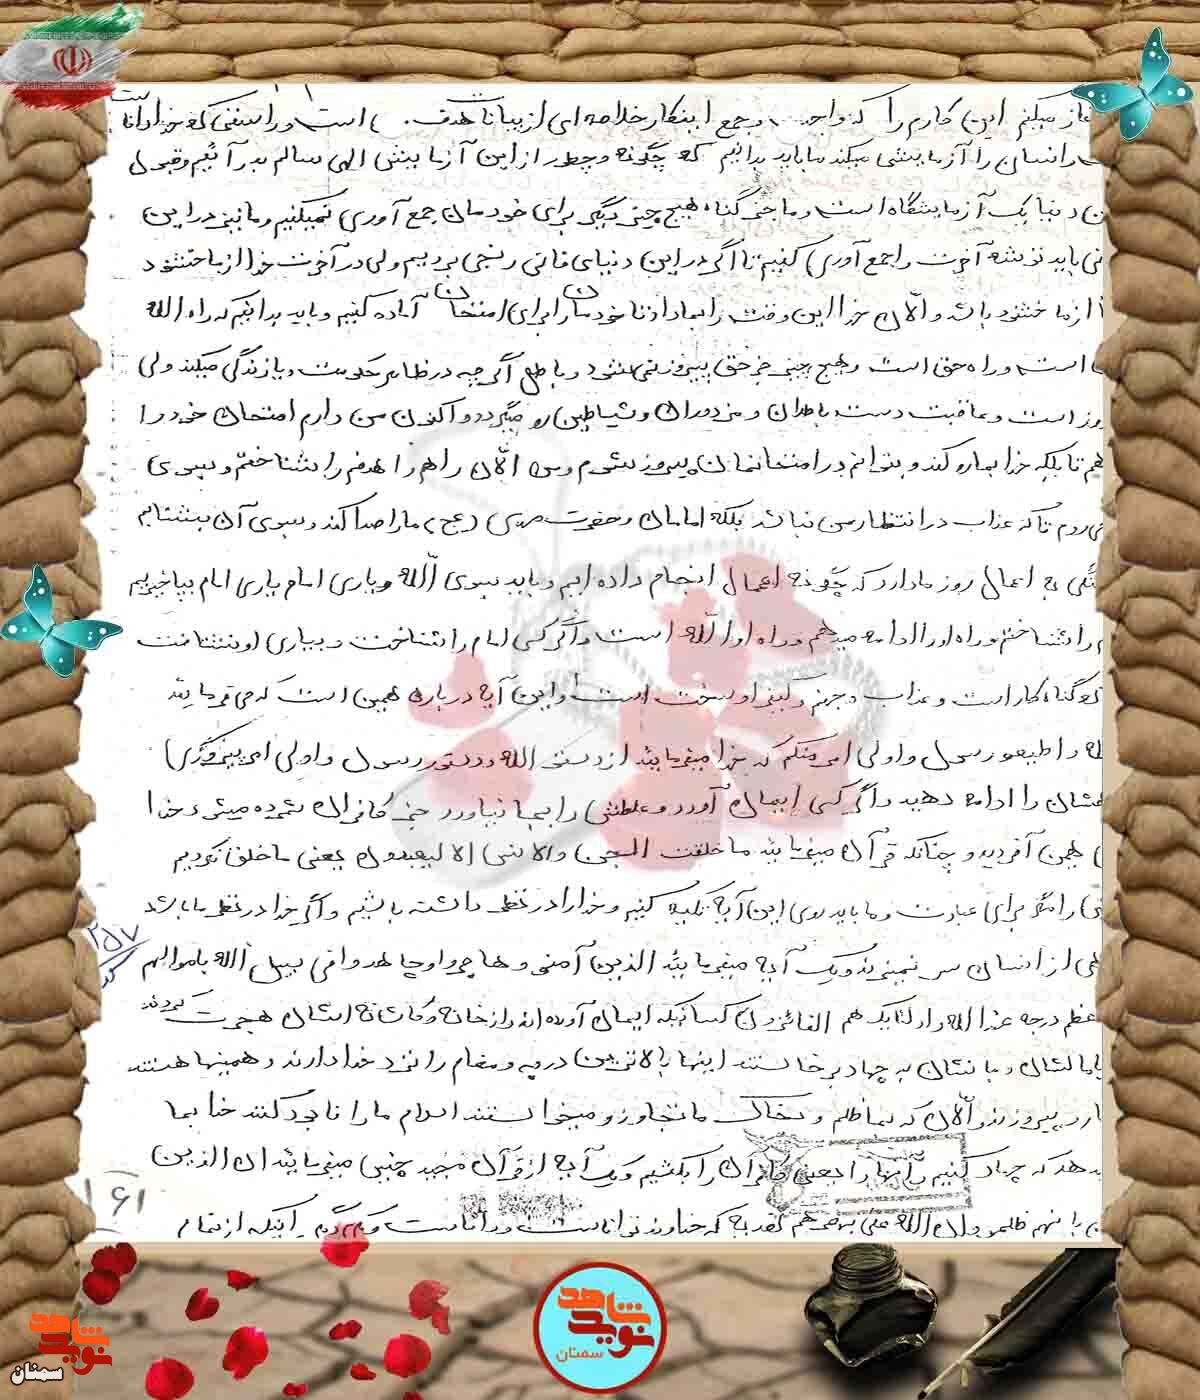 میکنم این کارم را که واجب و جمع اینکار خلاصه‌ای از بیانات هدف است و راستی که خدا دانا
انسان را آزمایش میکند ما باید بدانیم که چگونه و چطور از این آزمایش الهی سالم بدر آئیم و قبول
دنیا یک آزمایشگاه است و ما جز گناه هیچ چیز دیگری برای خودمان جمع آوری نمیکنیم و ما نیز در این
باید توشه آخرت را جمع آوری کنیم تا اگر در این دنیای فانی رنجی بردیم ولی در آخرت خدا از ما خشنود
از ما خشنود باشد و الان خدا این وقت را بما داد تا خودمان را برای امتحان آماده کنیم و باید بدانیم که راه الله
است و راه حق است و هیچ چیز جز حق پیروز نمی‌شود و باطل اگر چه در ظاهر حکومت و یا زندگی میکند ولی
است و عاقبت دست باطلان و مزدوران و شیاطین رو میگردد و اکنون من دارم امتحان خود را
تا بلکه خدا بما رو کند و بتوانم در امتحانمان پیروز شوم و من الان راهم را هدفم را شناختم و بسوی
می‌روم تا که عذاب در انتظار من نباشد بلکه امامان و حضرت مهدی (عج) ما را صدا کند و بسوی آن بشتابم
به اعمال روز ما دارد که چگونه اعمال انجام داده ایم و باید بسوی الله و یاری امام یاری امام بپاخیزیم
را شناختم و راه او را ادامه میدهم و راه او الله است و اگر کسی امام را شناخت و بیاری او نشتافت
که گناه کار است و عذاب و جهنم و کیفر او سخت است و این آیه درباره همین است که می‌فرماید
و اطیعو رسول و اولی امر منکم که خدا میفرماید از دستور الله و دستور رسول و اولی امر پیروی کرد
را ادامه دهید و اگر کسی ایمان آورد و عملش را بجا نیاورد جز کافران شمرده میشود خدا
همین آفرید و چنانکه قرآن میفرماید ما خلقت الجن والانس الا لیعبدون یعنی ما خلق نکردیم
را مگر برای عبادت و ما باید روی این آیه تکیه کنیم و خدا را در نظر داشته باشیم و اگر خدا در نظر ما باشد
از انسان سر نمیزند و یک آیه میفرماید الذین آمنو و هاجرو او جاهدوا فی سبیل الله باموالهم
اعظم درجه عندالله و اولئایک هم الفائزون کسانیکه ایمان آورده اند و از خانه و کاشانه اشان هجرت کردند
با مالشان و جانشان به جهاد برخاستند اینها بالاترین درجه و مقام را نزد خدا دارند و همینها هستند
پیروزند و الان که بما ظلم و بخاک ما تجاوز و میخواستند اسلام ما را نابود کنند خدا بما
که جهاد کنیم با آنها را یعنی کافران را بکشیم و یک آیه از قرآن مجید چنین میفرماید اذن الذین
بانهم ظلمو وان الله علی نصرهم لقدیر که خداوند توانا است و دانا است و میگویم اینکه از تمام
۲۵۷
۱۶۱
شاهد
نوید
سمنان
شاهد
نوید
سمنان